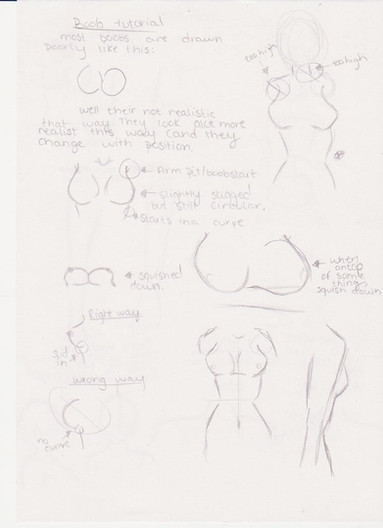 Boob tutorial
most boobs are drawn
poorly like this:
too high
too high
well their not realistic
that way. They look alce more
realist this way (and they
change with position.
Arm pit/boobstart
slightly sagged
but still circular.
starts in a curve
squished
down.
when
ontop
of some
thing,
squish down
Right way
in
wrong way
no
curve